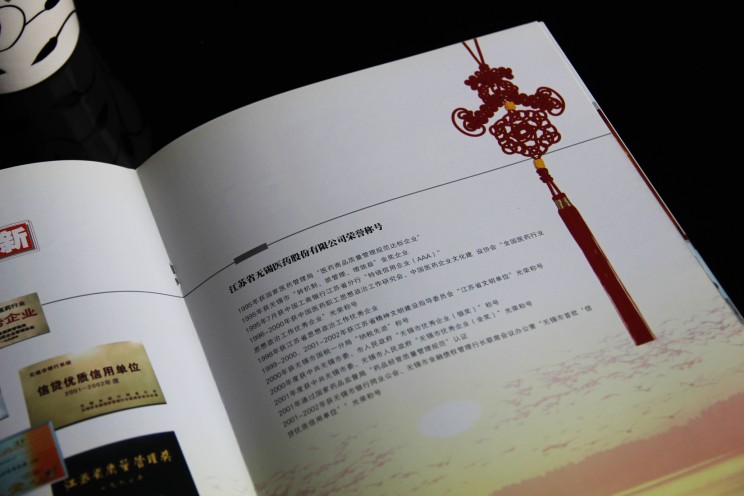 新
企业
信贷优质信用单位
2001-2002年度
江苏省质量管理奖
江苏省无锡医药股份有限公司荣誉称号
1995年获国家医药管理局“医药商品质量管理规范达标企业”
1995年获无锡市“转机制、抓管理、增效益”金奖企业
1995年7月获中国工商银行江苏省分行“特级信用企业（AAA）”
1996-2000年获中国医药职工思想政治工作研究会、中国医药企业文化建 设协会“全国医药行业
思想政治工作优秀企业”光荣称号
1998年获江苏省思想政治工作优秀企业
1999-2000、2001-2002年获江苏省精神文明建设指导委员会“江苏省文明单位”光荣称号
2000年获无锡市国税一分局“纳税先进”称号
2000年度获中共无锡市委、市人民政府“无锡市优秀企业（银奖）”称号
2001年度获中共无锡市委、市人民政府“无锡市优秀企业（金奖）”光荣称号
2001年通过国家药品监督局“药品经营质量管理规范”认证
2001-2002年获无锡市银行同业公会、无锡市金融债权管理行长联席会议办公室“无锡市首批‘信
贷优质信用单位’”光荣称号